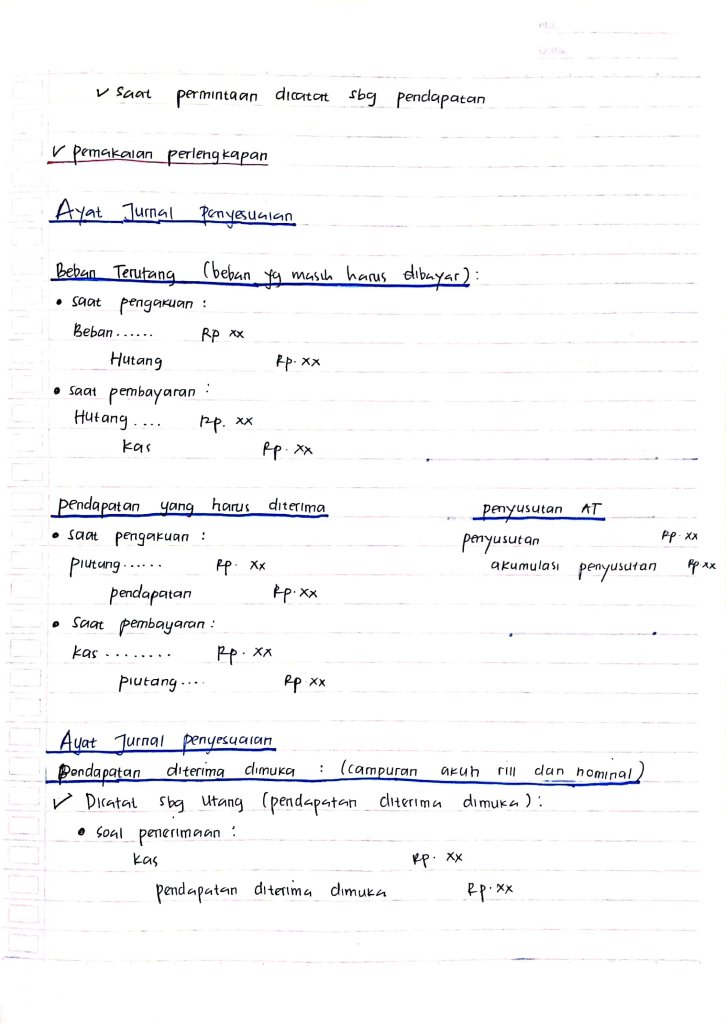 ✓ saat permintaan dicatat sbg pendapatan
✓ pemakaian perlengkapan
Ayat Jurnal Penyesuaian
Beban Terutang (beban yg masih harus dibayar) :
• saat pengakuan :
Beban...... Rp xx
Hutang Rp. xx
• saat pembayaran :
Hutang .... Rp. xx
kas Rp. xx
pendapatan yang harus diterima
• saat pengakuan :
piutang...... Rp. xx
pendapatan Rp. xx
• saat pembayaran :
kas ........ Rp. xx
piutang.... Rp xx
penyusutan AT
penyusutan Rp. xx
akumulasi penyusutan Rp xx
Ayat Jurnal penyesuaian
Pendapatan diterima dimuka : (campuran akun rill dan nominal)
✓ Dicatat sbg utang (pendapatan diterima dimuka) :
• soal penerimaan :
kas Rp. xx
pendapatan diterima dimuka Rp. xx